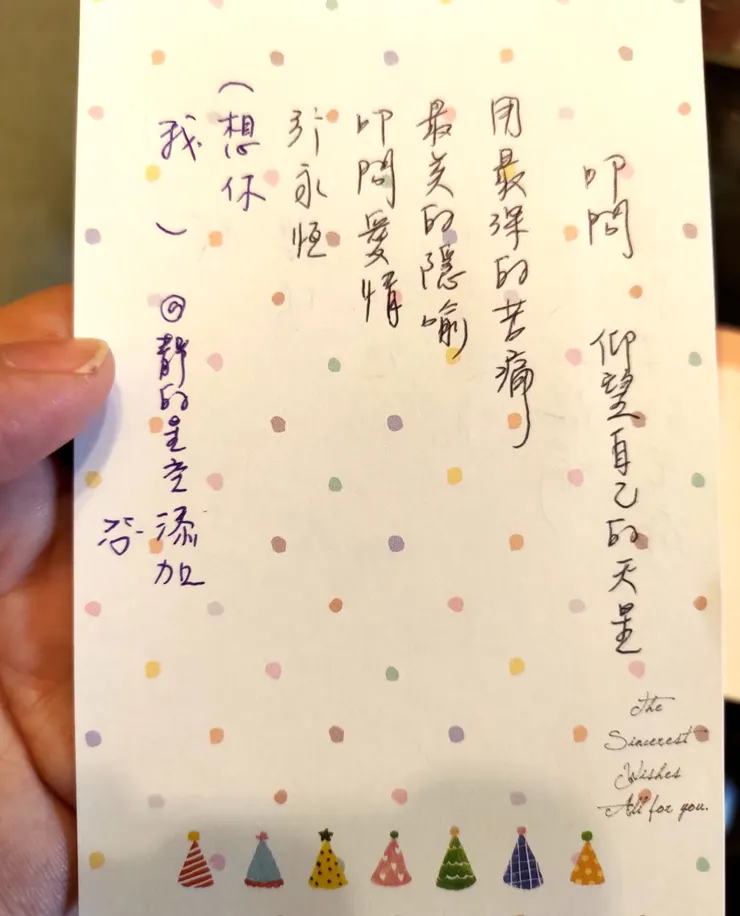 叩問 仰望自己的天星
用最深的苦痛
最美的隱喻
叩問愛情
永恒
(想你
我 ) @靜的星空添加
The
Sincerest
Wishes
All for you.